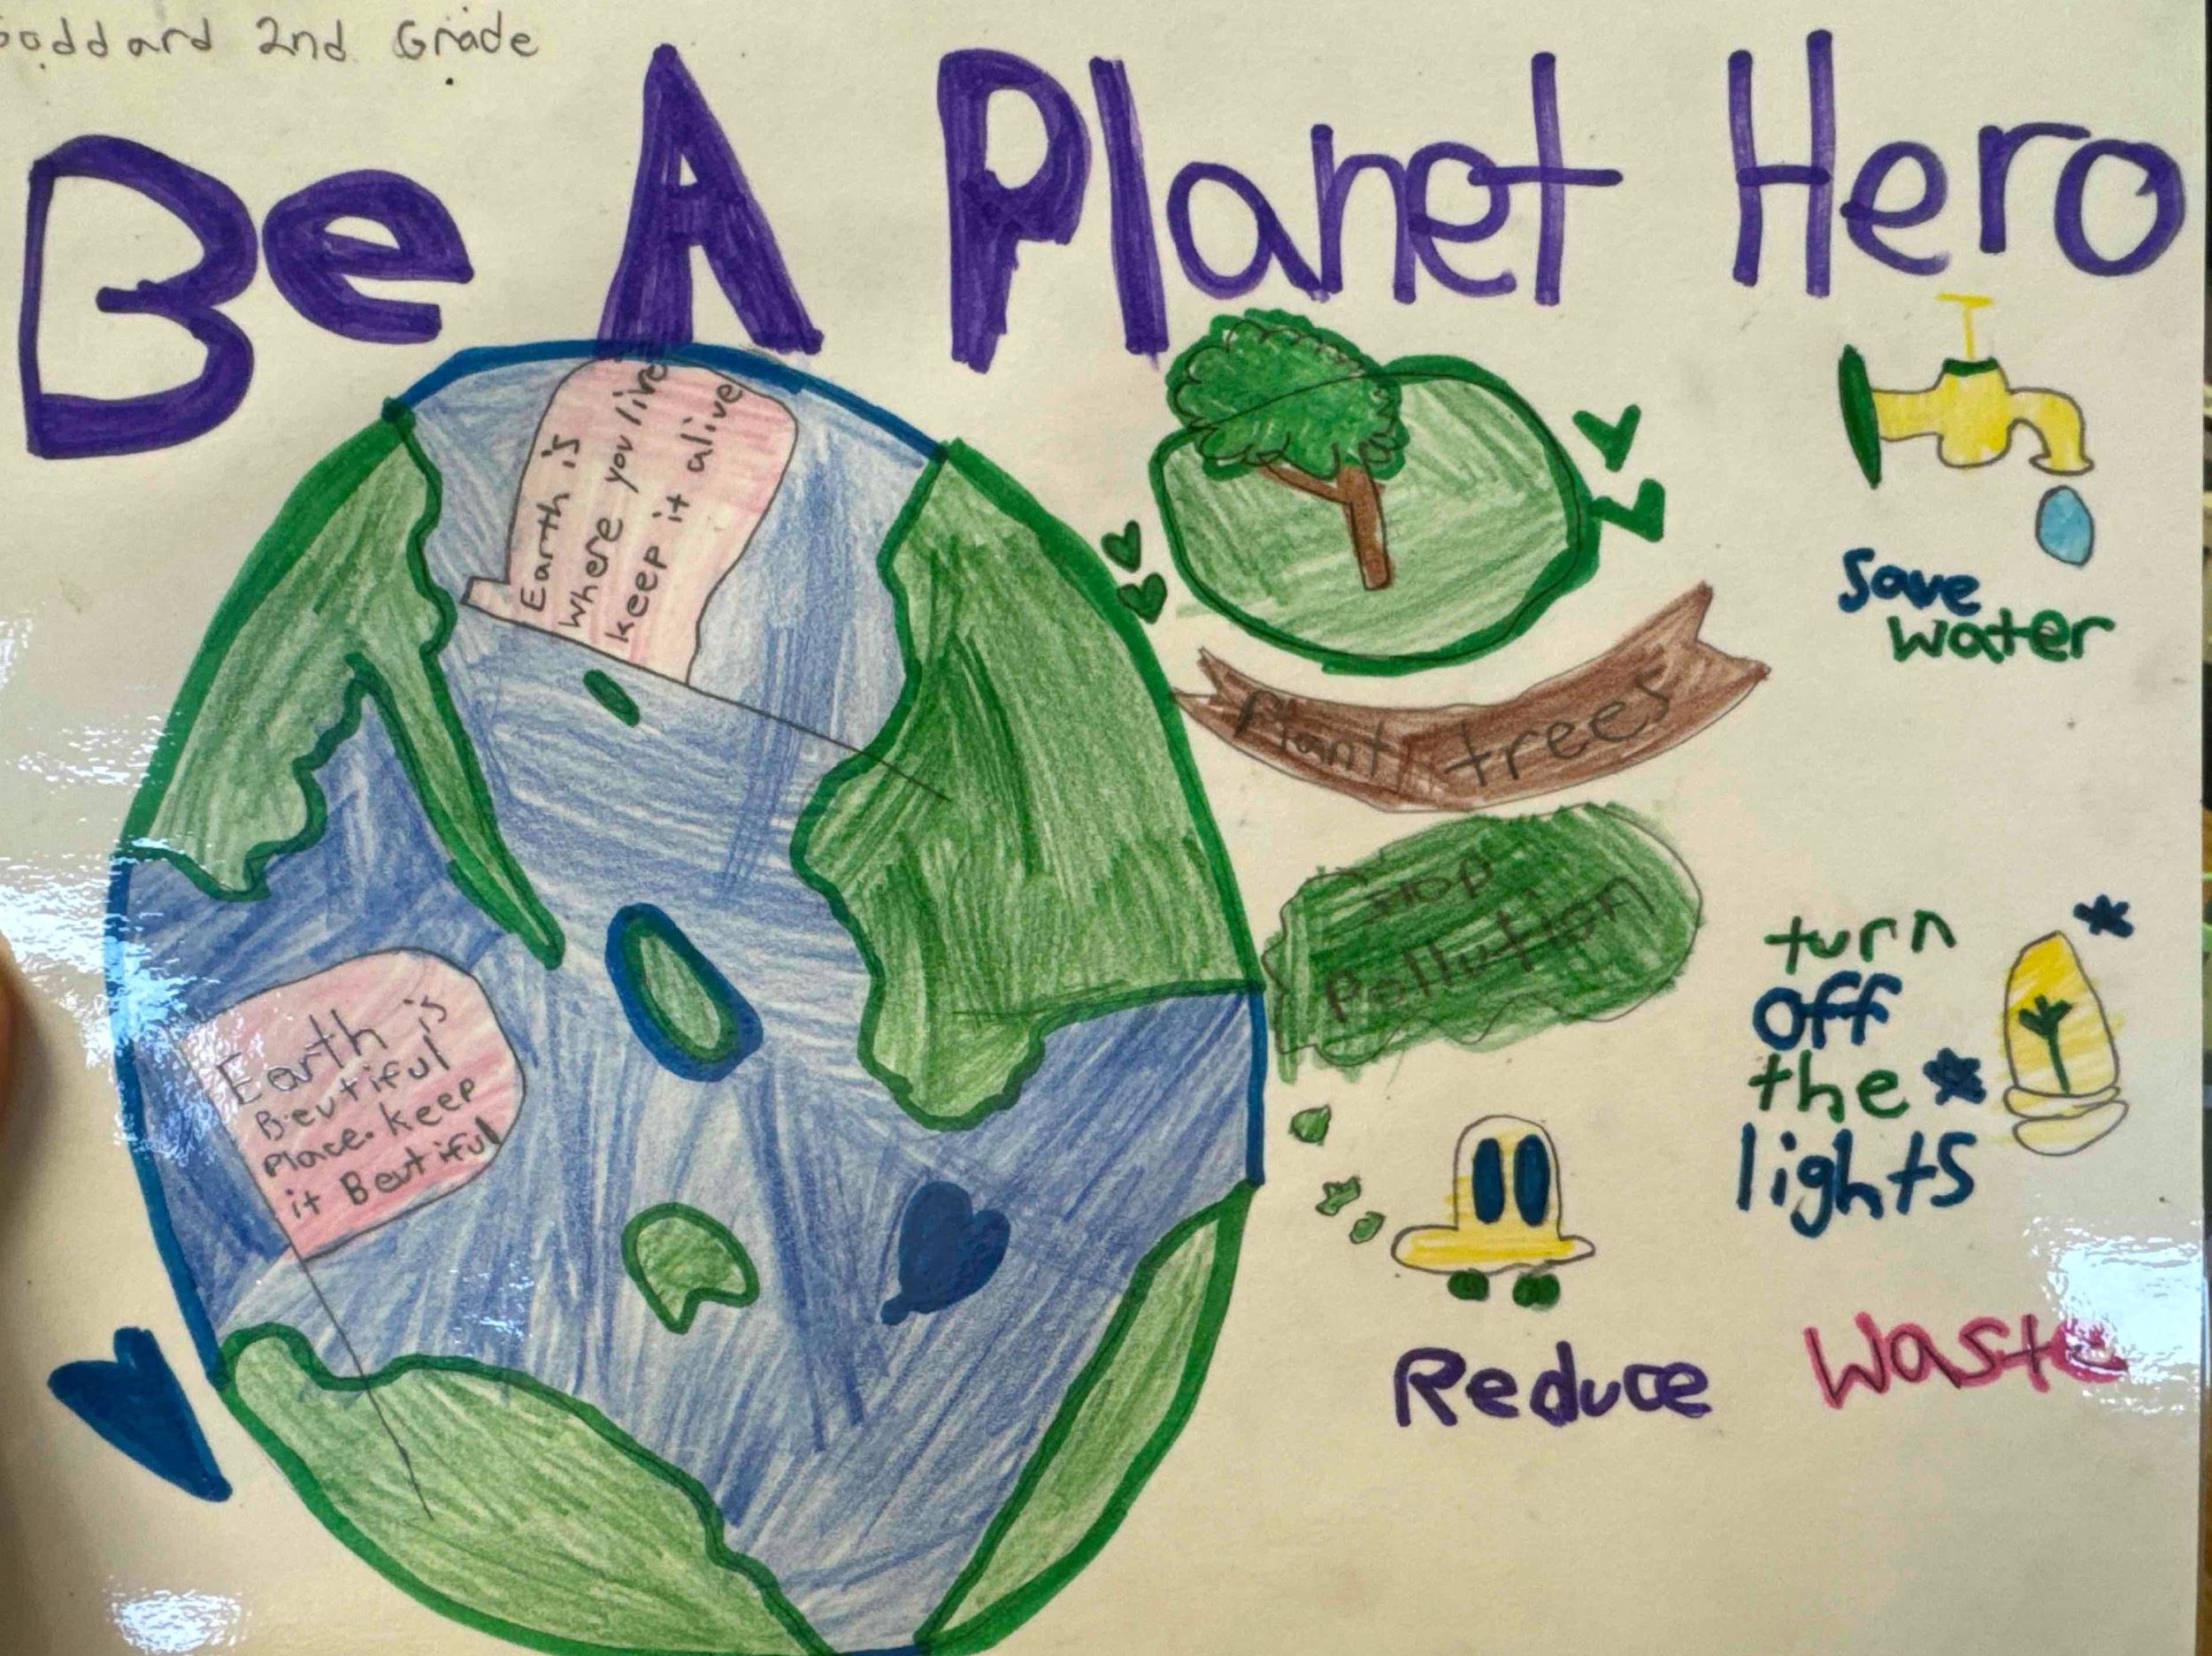 Goddard 2nd Grade
Be A Planet Hero
Earth is
where you live
keep it alive
Save
water
Plant trees
Stop
Pollution
turn
off
the
lights
Earth is
Beutiful
Place. keep
it Beutiful
Reduce Waste